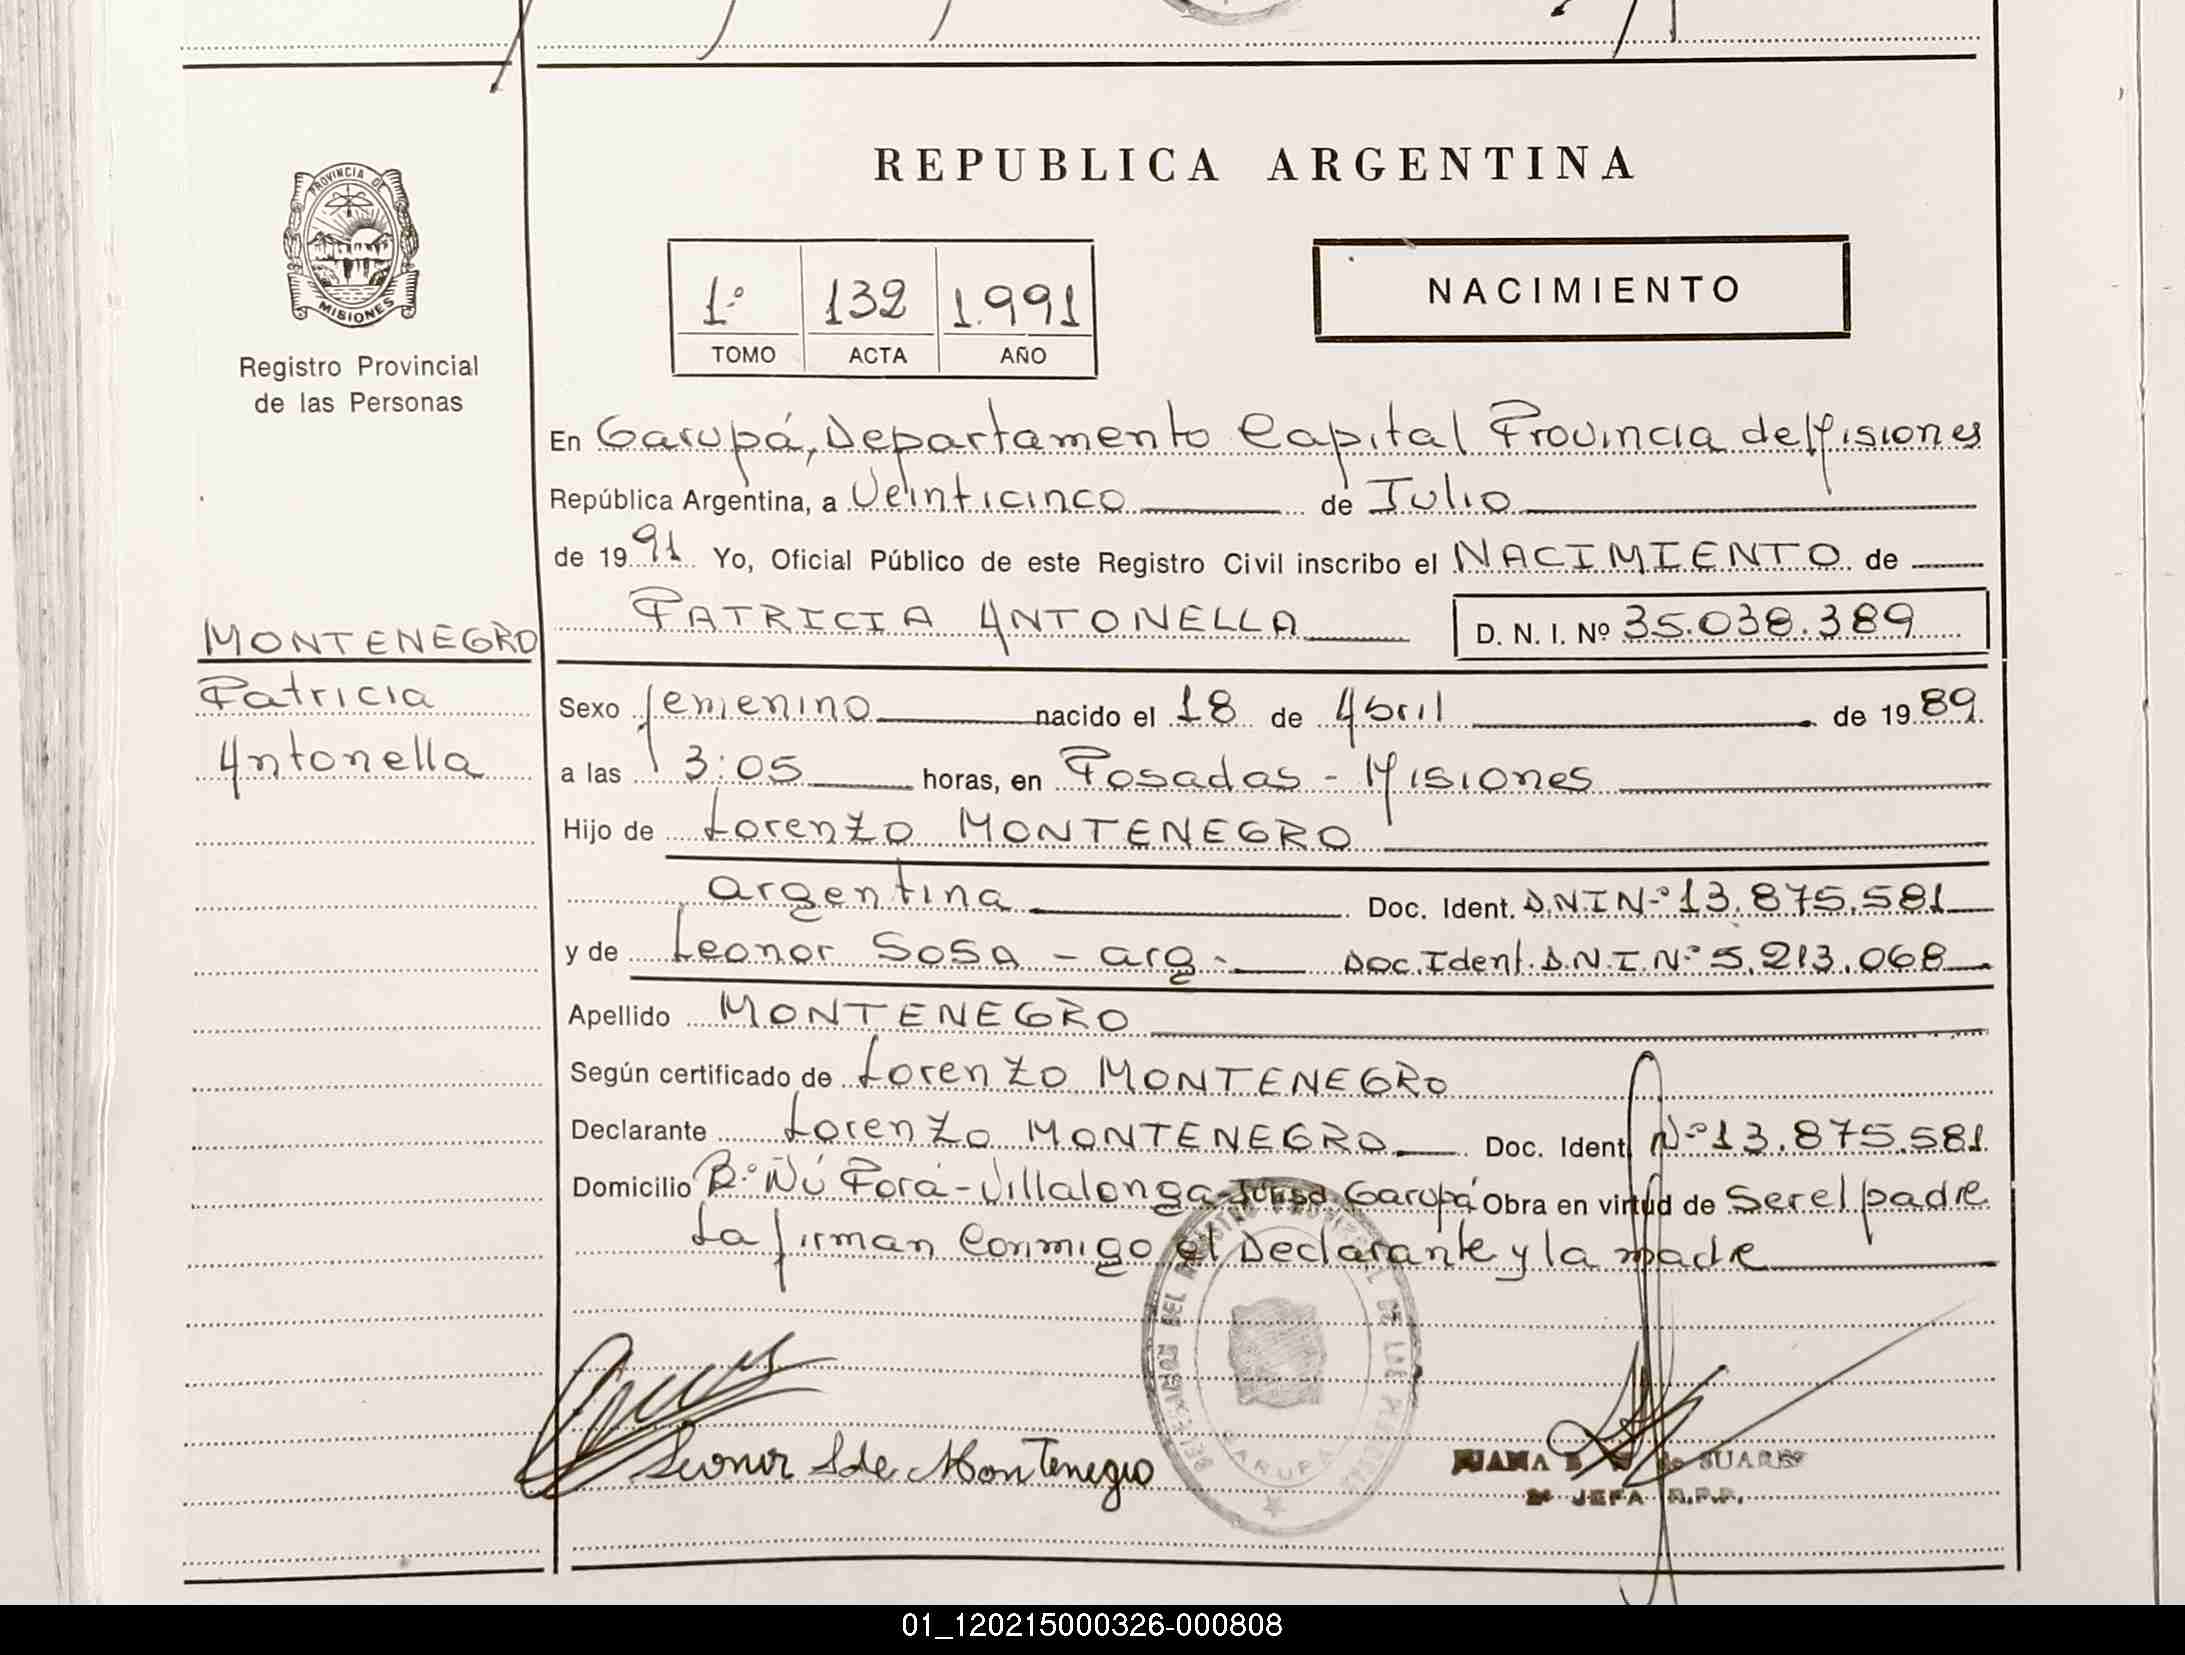 REPUBLICA ARGENTINA
PROVINCIA DE
MISIONES
Registro Provincial
de las Personas
1º 132 1.991
TOMO ACTA AÑO
NACIMIENTO
En Garupá, Departamento Capital Provincia de Misiones
República Argentina, a Veinticinco de Julio
de 1991 Yo, Oficial Público de este Registro Civil inscribo el NACIMIENTO de
PATRICIA ANTONELLA D. N. I. Nº 35.038.389
MONTENEGRO
Patricia
Antonella
Sexo femenino nacido el 18 de Abril de 1989
a las 3:05 horas, en Posadas - Misiones
Hijo de Lorenzo MONTENEGRO
argentina Doc. Ident. D.N.I Nº 13.875.581
y de Leonor SOSA - arg. Doc. Ident. D.N.I. Nº 5.213.068
Apellido MONTENEGRO
Según certificado de Lorenzo MONTENEGRO
Declarante Lorenzo MONTENEGRO Doc. Ident. Nº 13.875.581
Domicilio Bº Ñú Porá - Villalonga - Garupá Obra en virtud de Ser el padre
La firman Conmigo el Declarante y la madre
Leonor S de Montenegro
GARUPA
JUANA de SUAREZ
2ª JEFA R.P.P.
01_120215000326-000808